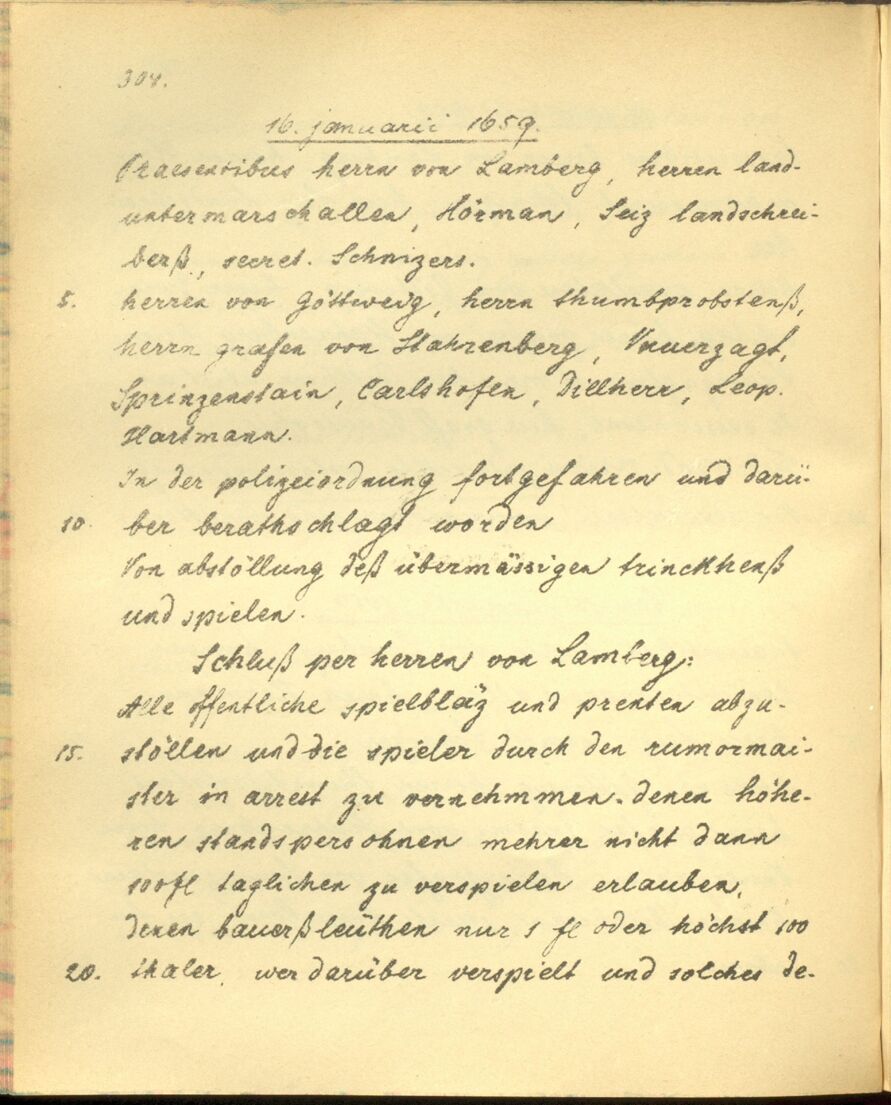 304.
16. januarii 1659.
Praesentibus herrn von Lamberg, herren land-
untermarschallen, Hörman, Seiz landschrei-
berß, secret. Schnizers.
5. herren von Göttweig, herrn thumbprobstenß,
herrn grafen von Stahrenberg, Unverzagt,
Sprinzenstain, Carlshofen, Dillherr, Leop.
Hartmann.
In der polizeiordnung fortgefahren und darü-
10. ber berathschlagt worden
Von abstöllung deß übermässigen trinckhenß
und spielen.
Schluß per herren von Lamberg:
Alle öffentliche spielbläz und prenten abzu-
15. stöllen und die spieler durch den rumormai-
ster in arrest zu vernehmmen. denen höhe-
ren standspersohnen mehrer nicht dann
100 fl taglichen zu verspielen erlauben,
denen bauerßleüthen nur 1 fl oder höchst 100
20. thaler, wer darüber verspielt und solches de-